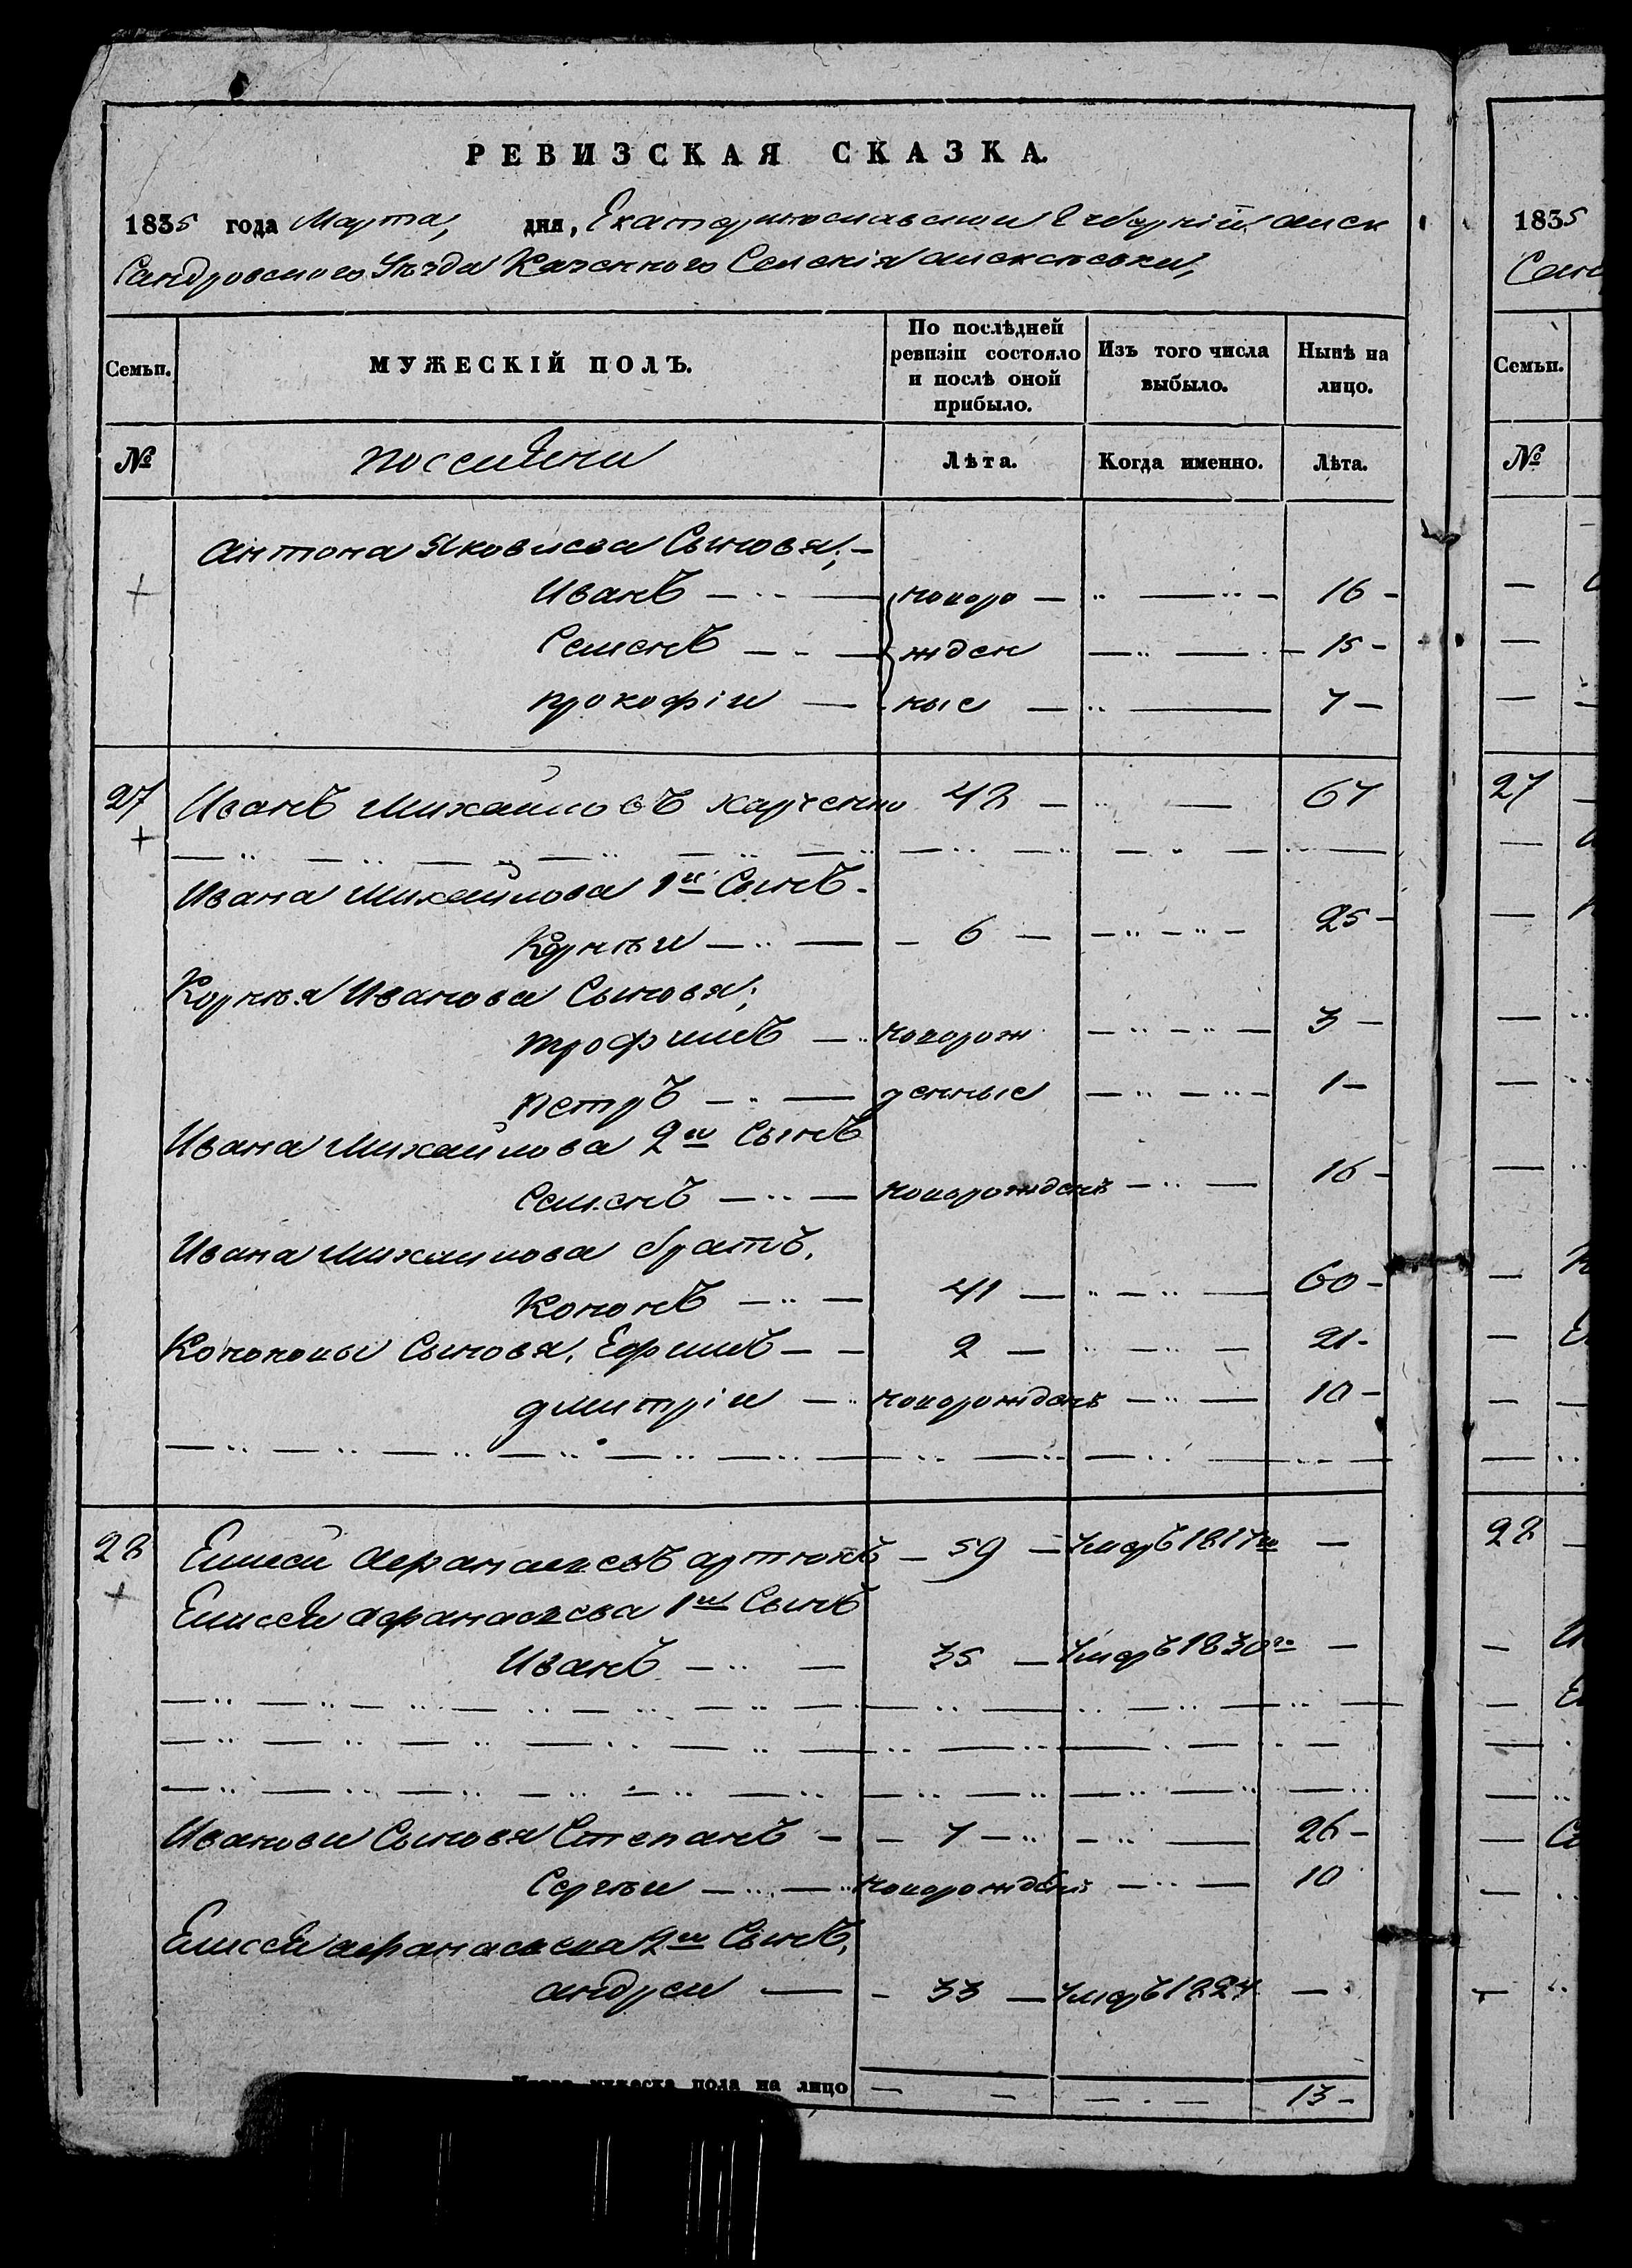 РЕВИЗСКАЯ СКАЗКА.
1835 года Марта, дня, Екатеринославской Губерніи алек
сандровского Уѣзда Казенного Селенія алексѣевки,
Семьи. МУЖЕСКІЙ ПОЛЪ. По послѣдней ревизіи состояло и послѣ оной прибыло. Изъ того числа выбыло. Нынѣ на лицо.
№ Лѣта. Когда именно. Лѣта.
антона Яковлева Сыновья;
Иванъ новоро 16
Семенъ жден 15
прокофіи ные 7
27 Иванъ михаиловъ харченко 48 67
Ивана михайлова 1й Сынъ
Корнѣи 6 25
Корнѣя Иванова Сыновья;
трофимъ новорож 3
петръ денные 1
Ивана михайлова 2й Сынъ
Семенъ новорожденъ 16
Ивана михаилова братъ,
Кононъ 41 60
Кононовы Сыновья, Ефимъ 2 21
дмитріи новорожденъ 10
28 Елисей афанасьевъ артюхъ 59 Умръ 1817го
Елисея афанасьева 1й Сынъ
Иванъ 35 Умръ 1830го
Ивановы Сыновья Степанъ 7 26
Сергѣи новорожденъ 10
Елисея афанасьева 2й Сынъ,
андреи 33 Умръ 1824
мужеска пола на лицо 13
1835
Семьи.
№
27
28